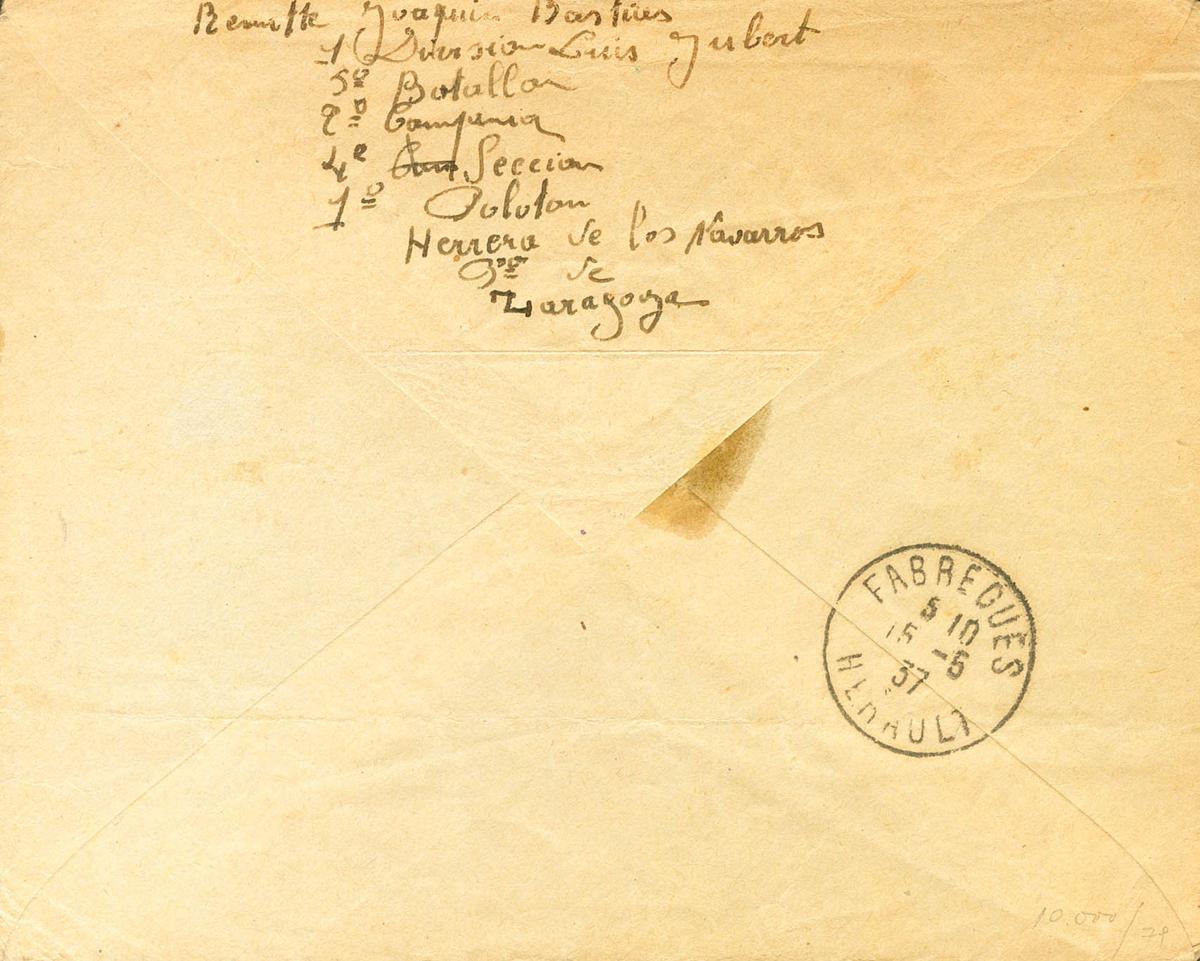 Remitte Joaquin Bastues
1 Division Luis Jubert
5º Botallon
2º Compania
4e Com Seccion
1º Poloton
Herrera de los Navarros
de
Zaragoza
FABREGUES
5 10
15 -5
37
HERAULT
10.000/